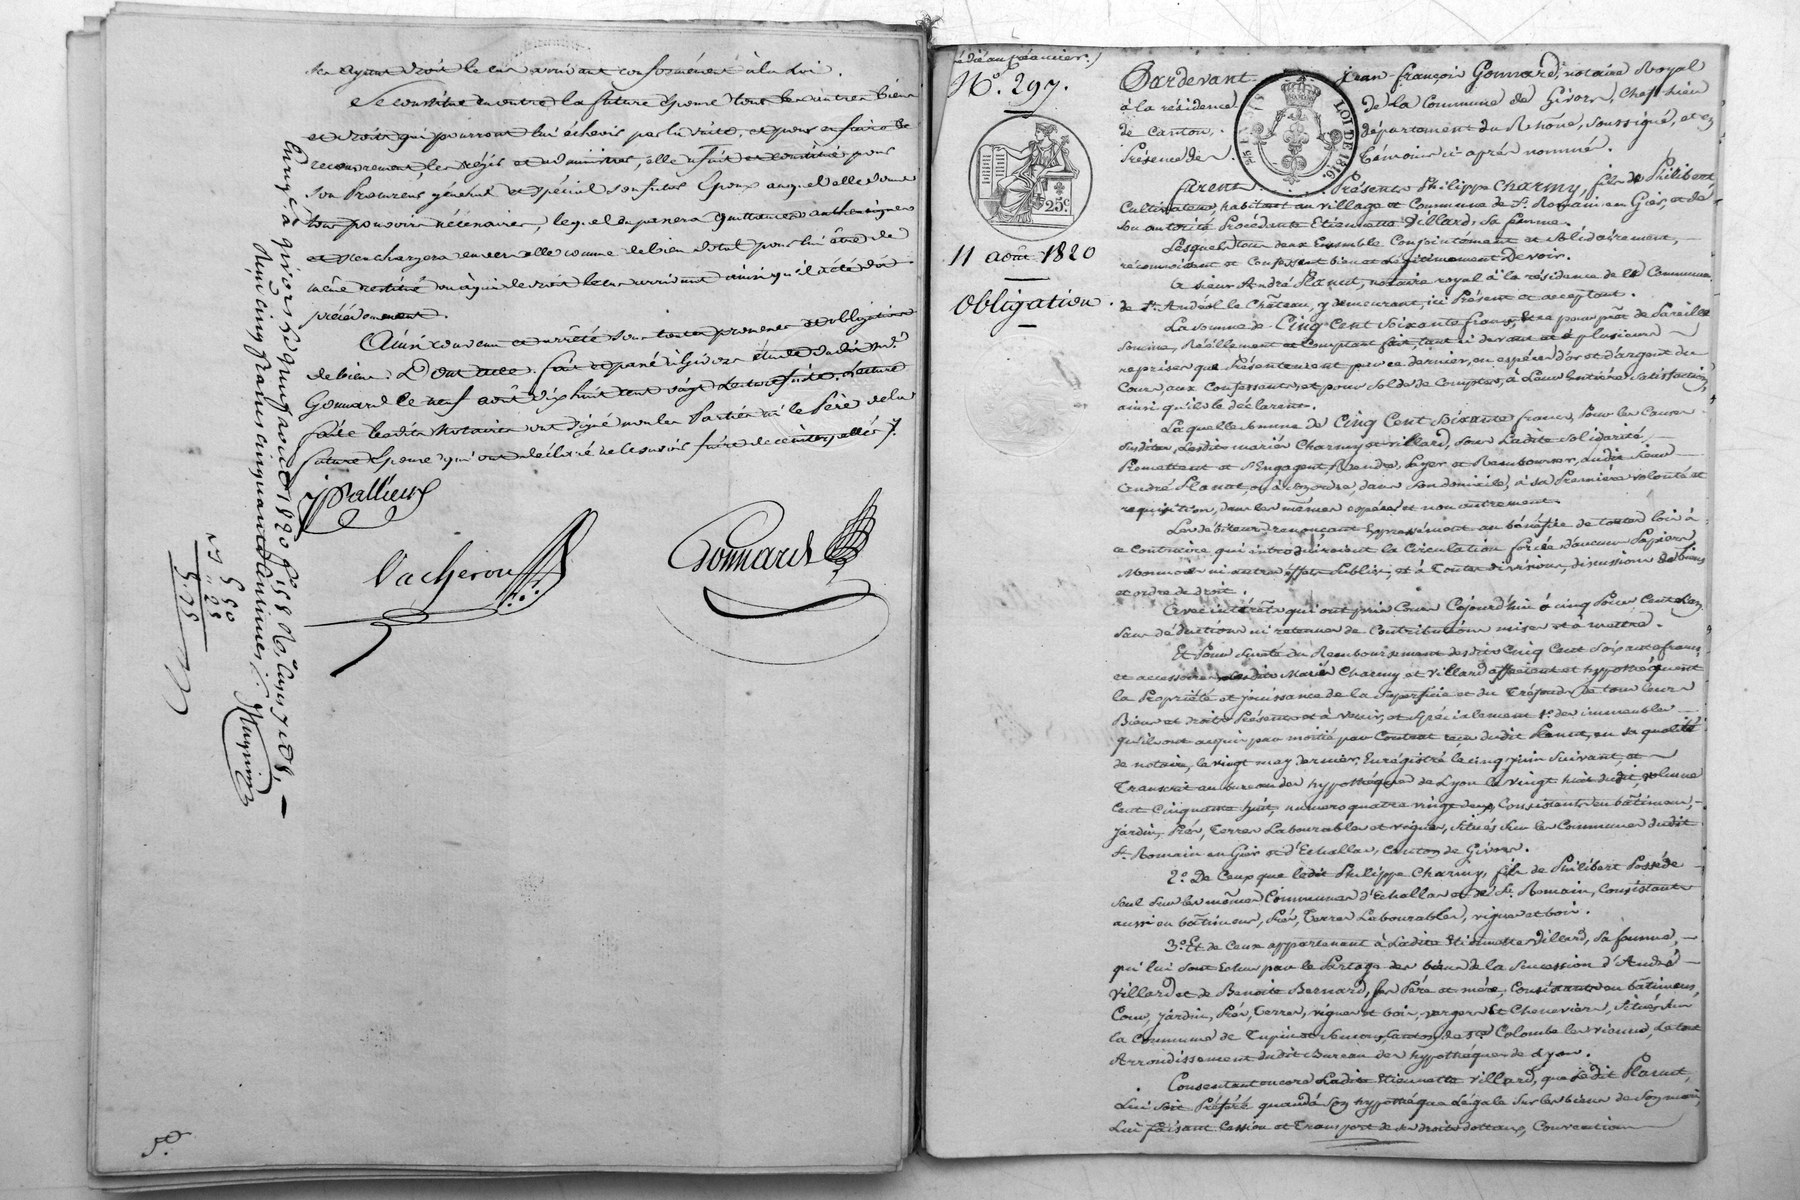 ses ayant droit le cas arrivant conformément à la loi.
Se constitue en outre la future épouse tous les autres biens
et droits qui pourront lui échevir par la suite, et pour en faire le
recouvrement, les régir et administrer, elle a fait et constitué pour
son Procureur général et spécial son futur Epoux auquel elle donne
tous pouvoirs nécessaires, lequel en passera quittances authentiques
et s'en chargera envers elle comme de bien dotal pour lui être de
même restitué ou à qui de droit le cas arrivant ainsi qu'il a été dit
précédemment.
Ainsi convenu et arrêté sous toutes promesses et obligations
de biens. Dont acte. fait et passé à Givors étude dudit Me
Gonnard le neuf août dix huit cent vingt Lecture faite. Lecture
faite lesdits Notaires ont signé non les Parties ni le Père de la
future Epouse qui ont déclaré ne le savoir faire de ce interpellés
Pallieux
Vacheron
Gonnard
Enregé à givors le quinze août 1820
Reçu cinq francs cinquante centimes
Magnin
5 50
55
5e
N° 297.
25c
11 août 1820
Obligation.
LOI DE 1816
Pardevant Jean-François Gonnard, notaire Royal
à la résidence de la Commune de Givors, Chef-lieu
de Canton, département du Rhône, soussigné, et en
Présence des témoins ci après nommés.
furent Présents Philippe Charmy, fils de Philibert
Cultivateur, habitant au village et Commune de St. Romain en Gier, et de
son autorité Procédante Etiennette Villard, sa femme
Lesquels tous deux Ensemble Conjointement et solidairement,
reconnoissent et Confessent bien et légitimement devoir.
A sieur André Planut, notaire royal à la résidence de la Commune
de St. Andéol le Château, y demeurant, ici Présent et acceptant.
La somme de Cinq Cent Soixante francs, Et ce pour prêt de Pareille
somme, Réellement et Comptant fait, tant ci devant et à plusieurs
reprises que Présentement par ce dernier, en espèces d'or et d'argent du
Cour, aux Confessants, et pour Solde de Comptes, à Leur Entière satisfaction,
ainsi qu'ils le déclarent.
Laquelle somme de Cinq Cent Soixante francs, Pour les Causes
susdites, lesdits mariés Charmy et Villard, sous Ladite solidarité,
Promettent et s'Engagent, Rendre, Payer et Rembourser, audit sieur
André Planut, ou à son ordre, dans son domicile, à sa Première volonté et
requisition, dans les mêmes espèces et non autrement.
Les débiteurs renonçant Expressément au bénéfice de toutes loix à
ce Contraire, qui introduiroient la Circulation forcée d'aucuns Papiers
Monnoies ni autres effets Publics, et à Toutes divisions, discussions de biens
et ordre de droit.
Avec intérêts qui ont pris Cours Cejourd'hui à cinq Pour Cent L'an
sans déductions ni retenues de Contributions mises et à mettre.
Et Pour Sureté du Remboursement desdits Cinq Cent Soixante francs
et accessoires lesdits Mariés Charmy et Villard affectent et hypothéquent
la Propriété et jouissance de la Superficie et du Tréfonds de tous leurs
Biens et droits Présents et à venir, et spécialement 1°. des immeubles
qu'ils ont acquis par moitié par Contrat reçu dudit Planut, en sa qualité
de notaire, le vingt may dernier, Enregistré le cinq juin Suivant, et
Transcrit au bureau des hypothèques de Lyon le vingt huit dudit, volume
Cent Cinquante huit, numero quatre vingt deux, Consistants en bâtiments,
jardin, Prés, Terres Labourables et vignes, Situés Sur les Communes dudit
St. Romain en Gier et d'Echallas, Canton de Givors.
2°. De Ceux que ledit Philippe Charmy, fils de Philibert Possède
seul Sur les mêmes Communes d'Echallas et de St. Romain, Consistants
aussi en bâtiments, Prés, Terres Labourables, vignes et bois.
3°. Et de Ceux appartenant à Ladite Etiennette Villard, sa femme,
qui lui sont Echus par le Partage des biens de la succession d'André
Villard et de Benoite Bernard, ses Père et mère, Consistants en bâtiments,
Cour, jardin, Prés, Terres, vignes et bois, vergers et Chenevières, Situés sur
la Commune de Tupin et Semons, canton de Ste Colombe les vienne, le tout
Arrondissement dudit Bureau des hypothèques de Lyon.
Consentant encore Ladite Etiennette Villard, que ledit Planut,
Lui soit Préféré quand à son hypothèque Légale sur les biens de Son mari,
Lui faisant Cession et Transport de ses droits dottaux, Conventions